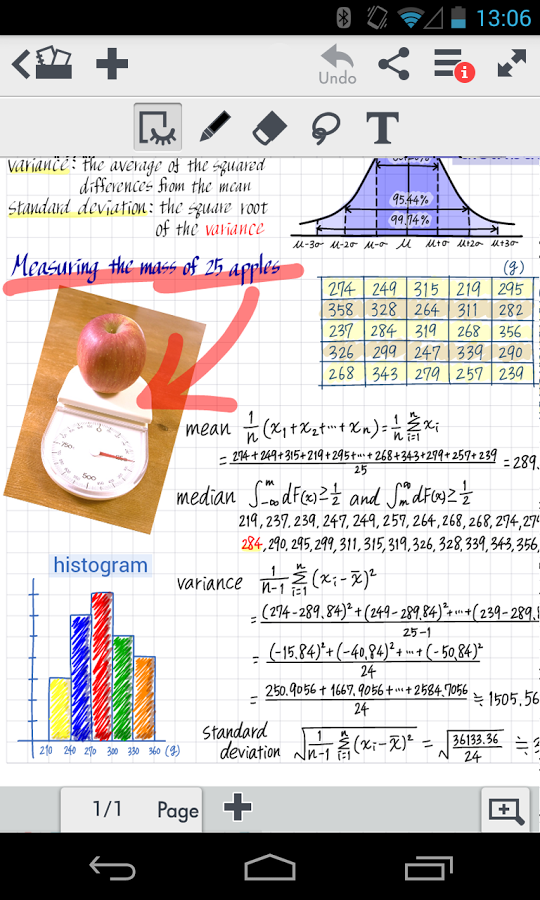 13:06
Undo
T
variance: the average of the squared
differences from the mean
standard deviation: the square root
of the variance
95.44%
99.74%
μ-3σ μ-2σ μ-σ μ μ+σ μ+2σ μ+3σ
Measuring the mass of 25 apples
(g)
274 249 315 219 295
358 328 264 311 282
237 284 319 268 356
326 299 247 339 290
268 343 279 257 239
mean 1/n (x₁+x₂+···+xₙ)=1/n Σⁿᵢ₌₁ xᵢ
= 274+249+315+219+295+···+268+343+279+257+239/25 = 289.
median ∫₋∞ᵐ dF(x)≥1/2 and ∫ₘ∞ dF(x)≥1/2
219, 237, 239, 247, 249, 257, 264, 268, 268, 274, 27
284, 290, 295, 299, 311, 315, 319, 326, 328, 339, 343, 356,
histogram
variance 1/n-1 Σⁿᵢ₌₁ (xᵢ-x̄)²
= (274-289.84)²+(249-289.84)²+···+(239-289.8/25-1
= (-15.84)²+(-40.84)²+···+(-50.84)²/24
= 250.9056+1667.9056+···+2584.7056/24 ≒ 1505.56
standard deviation √1/n-1 Σⁿᵢ₌₁ (xᵢ-x̄)² = √36133.36/24 ≒ 3
210 240 270 300 330 360 (g)
1/1 Page